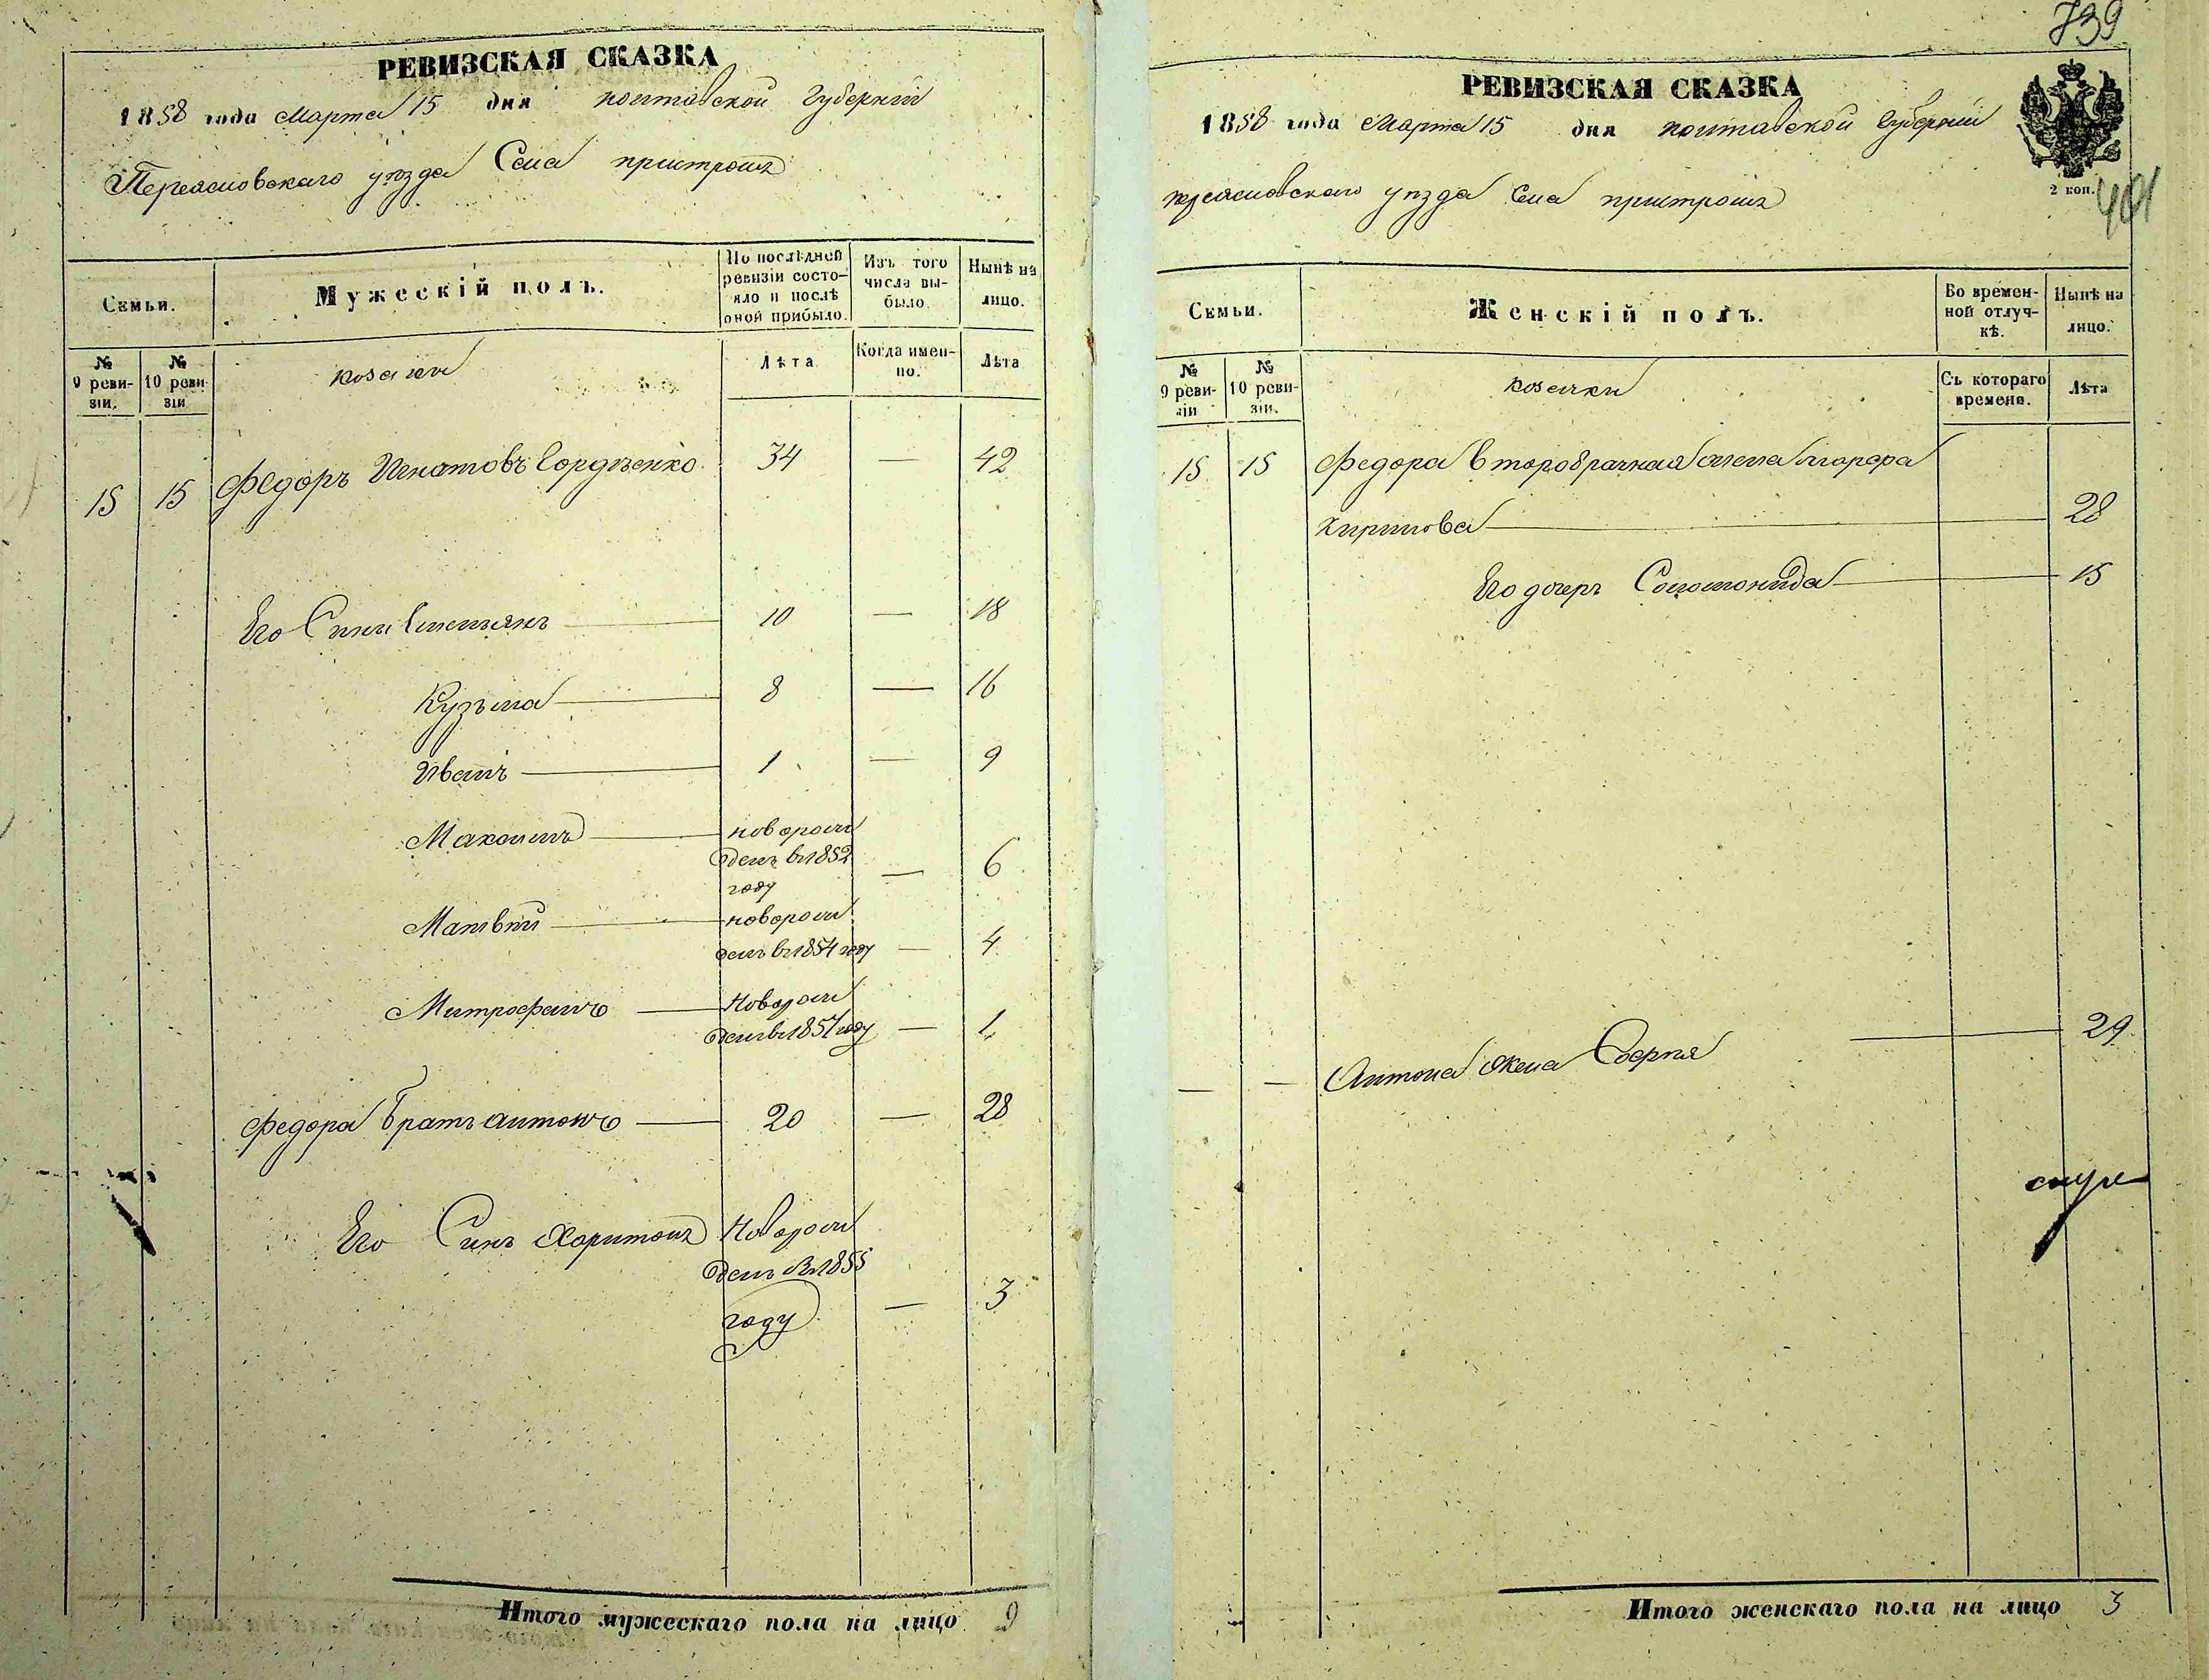 РЕВИЗСКАЯ СКАЗКА
1858 года Марта 15 дня полтавской Губернии
Переясловскаго уезда Села пристромъ
Семьи.
Мужескій полъ.
По послѣдней ревизіи состо-
яло и послѣ
оной прибыло.
Изъ того
числа вы-
было.
Нынѣ на
лицо.
№
9 реви-
зіи.
№
10 реви-
зіи
козаки
Лѣта
Когда имен-
но.
Лѣта
15 15 Федоръ Игнатовъ Гордѣенко 34 — 42
Его Сини Емельянъ 10 — 18
Кузьма 8 — 16
Иванъ 1 — 9
Максимъ новорож
денъ въ 1852
году — 6
Матвѣй новорож
денъ въ 1854 году — 4
Митрофанъ Новорож
денъ въ 1857 году — 1
Федора братъ антонъ 20 — 28
Его Синъ Харитонъ Новорож
денъ въ 1855
году — 3
Итого мужескаго пола на лицо 9
739
РЕВИЗСКАЯ СКАЗКА
1858 года Марта 15 дня полтавской Губернии
2 коп.
401
переясловскаго уезда Села пристромъ
Семьи.
Женскій полъ.
Во времен-
ной отлуч-
кѣ.
Нынѣ на
лицо.
№
9 реви-
зіи
№
10 реви-
зіи.
козачки
Съ котораго
времени.
Лѣта
15 15 Федора второбрачная жена
Кирилова 28
Его дочерь Соломонида 15
— — Антона жена Софія 29
Итого женскаго пола на лицо 3